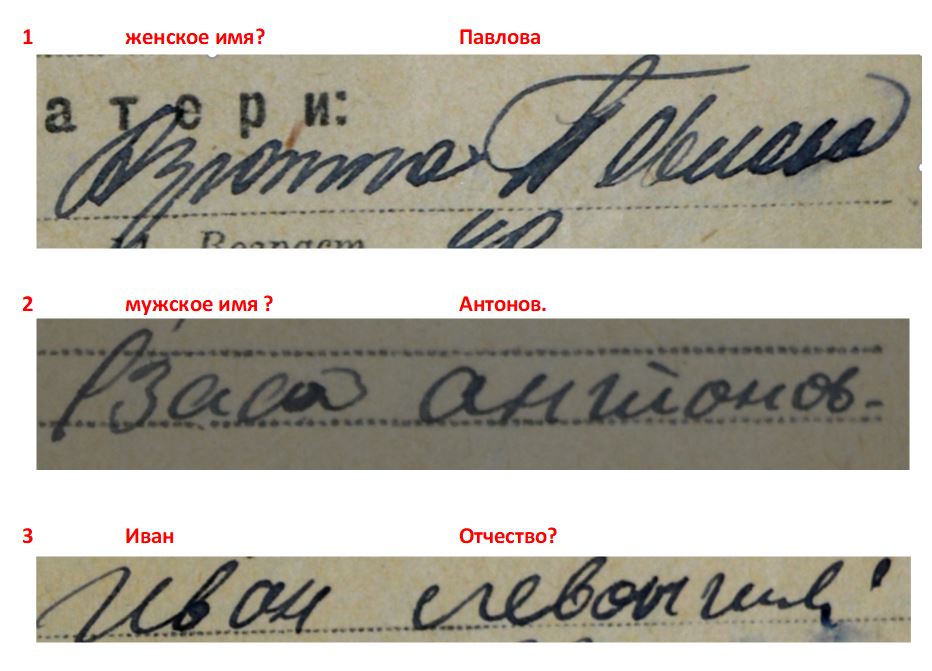 1 женское имя? Павлова
а т е р и:
Павлова
Возраст 40
2 мужское имя ? Антонов.
Антонов.
3 Иван Отчество?
Иван